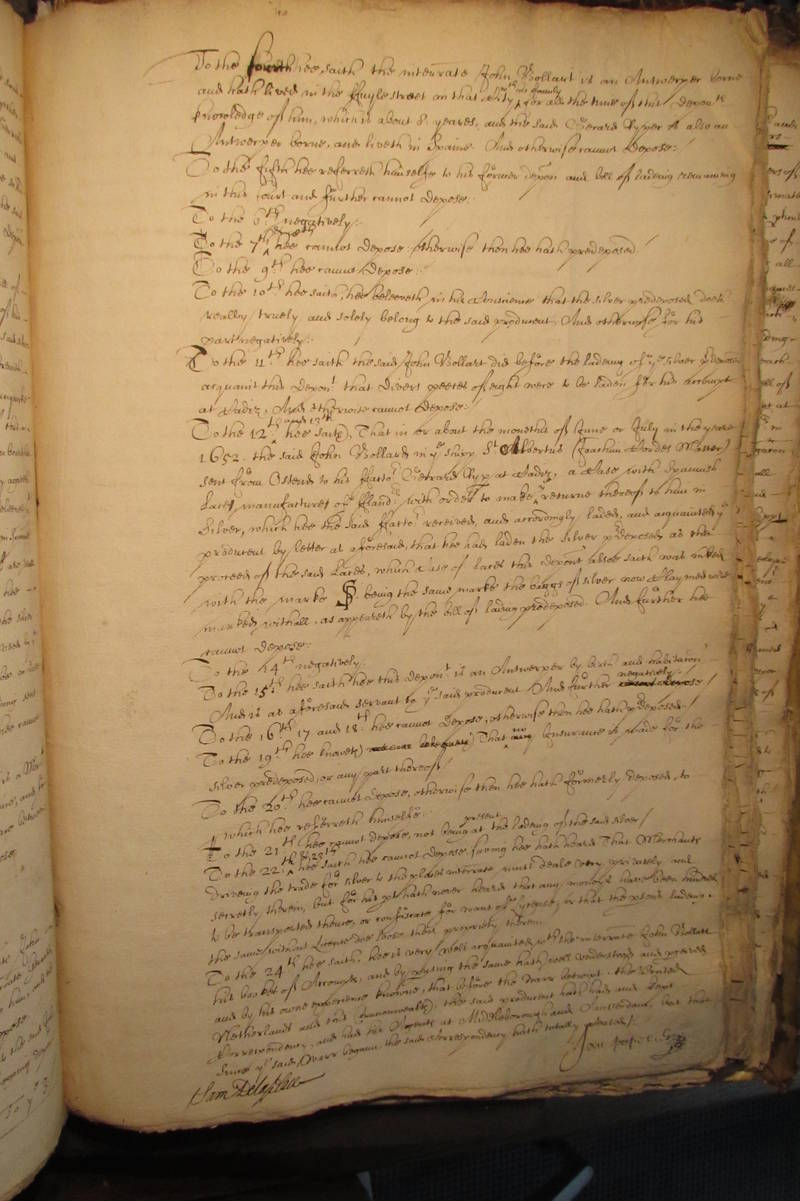 To the fourth hee saith the interrate John Bollart is an Antwerper borne
and hath lived in the Huyle street in that Citty with his family for all the time of this depon.ts
knowledge of him, which is about 8 yeares, and the said Gerard Syper is also an
Antwerper borne, and liveth in Spaine. And otherwise cannot depose:/
To the fifth hee referreth himselfe to his former depon and bill of lading remaining
in this court and further cannot depose:
To the 6th negatively:/
To the 7th hee cannot depose otherwise then hee hath predeposed/
To the 9th hee cannot depose:
To the 10th hee saith, hee beleeveth in his Conscience that the silver predeposed doeth
really, truely and solely belong to the said producent, And otherwise for his
part negatively:
To the 11th hee saith the said John Bollart did before the lading of ye silver
acquaint this depont that divers peeces of eight were to be laden for his accompt
at Cadiz, And otherwise cannot depose:
To the 12th and 13th hee saith, That in or about the moneths of June or July in the yeare
1652. the said John Bollard in ye shipp St Albertus (Joachim Master)
sent from Ostend to his ffactor Gerrard at Cadiz, a Case with Spannish
Laces, manufactures of with order to make returne thereof to him in
Silver, which hee the said ffactor received, and accordingly laded, and acquainted ye
producent by letter as aforesaid, that hee had laden the silver predeposed as the
proceed of the said Laces, which Case of laces this deponent alsoe saith was marked
with the marke being the same marke the baggs of silver now claymed were
marked withall, as appeareth by the bill of lading predeposed. And further hee
cannot depose:
To the 14th negatively:
To the 15th hee saith hee this depont is an Antwerper by birth and habitation
And is as aforesaid servant to ye said producent And further negatively
To the 16th 17 and 18th hee cannot depose, otherwise then hee hath predeposed:/
To the 19th hee knoweth That no Ensurance is made for the
silver predeposed, or any part thereof/
To the 20th hee cannot depose, otherwise then hee hath formerly deposed, to
which hee referreth himselfe:
To the 21th hee cannot depose, not being present at the lading of the said silver/
To the 22th hee saith hee cannot depose saving hee hath heard That Merchants
driveing the trade for silver to the places interrate must deale very privately and
secretly therein, but for his pt hath never heard that any moneys have been hindred
to be transported thence, or confiscate for want of Lycense, or that the psons lading
the same without License doe loose their propriety therein
To the 24th hee saith hee is very well acquainted with the interrate John Bollart
his bookes of Accompts, and by the same hath well understood and pceived
and by his owne experience knowne, that before the Warr betwixt the United
Netherlands and this Commonwealth, the said producent hath had and kept
Correspondency, and had his Agents at Middleborough and Amsterdam, but that
since ye said Warr began, the said Correspondency hath totally